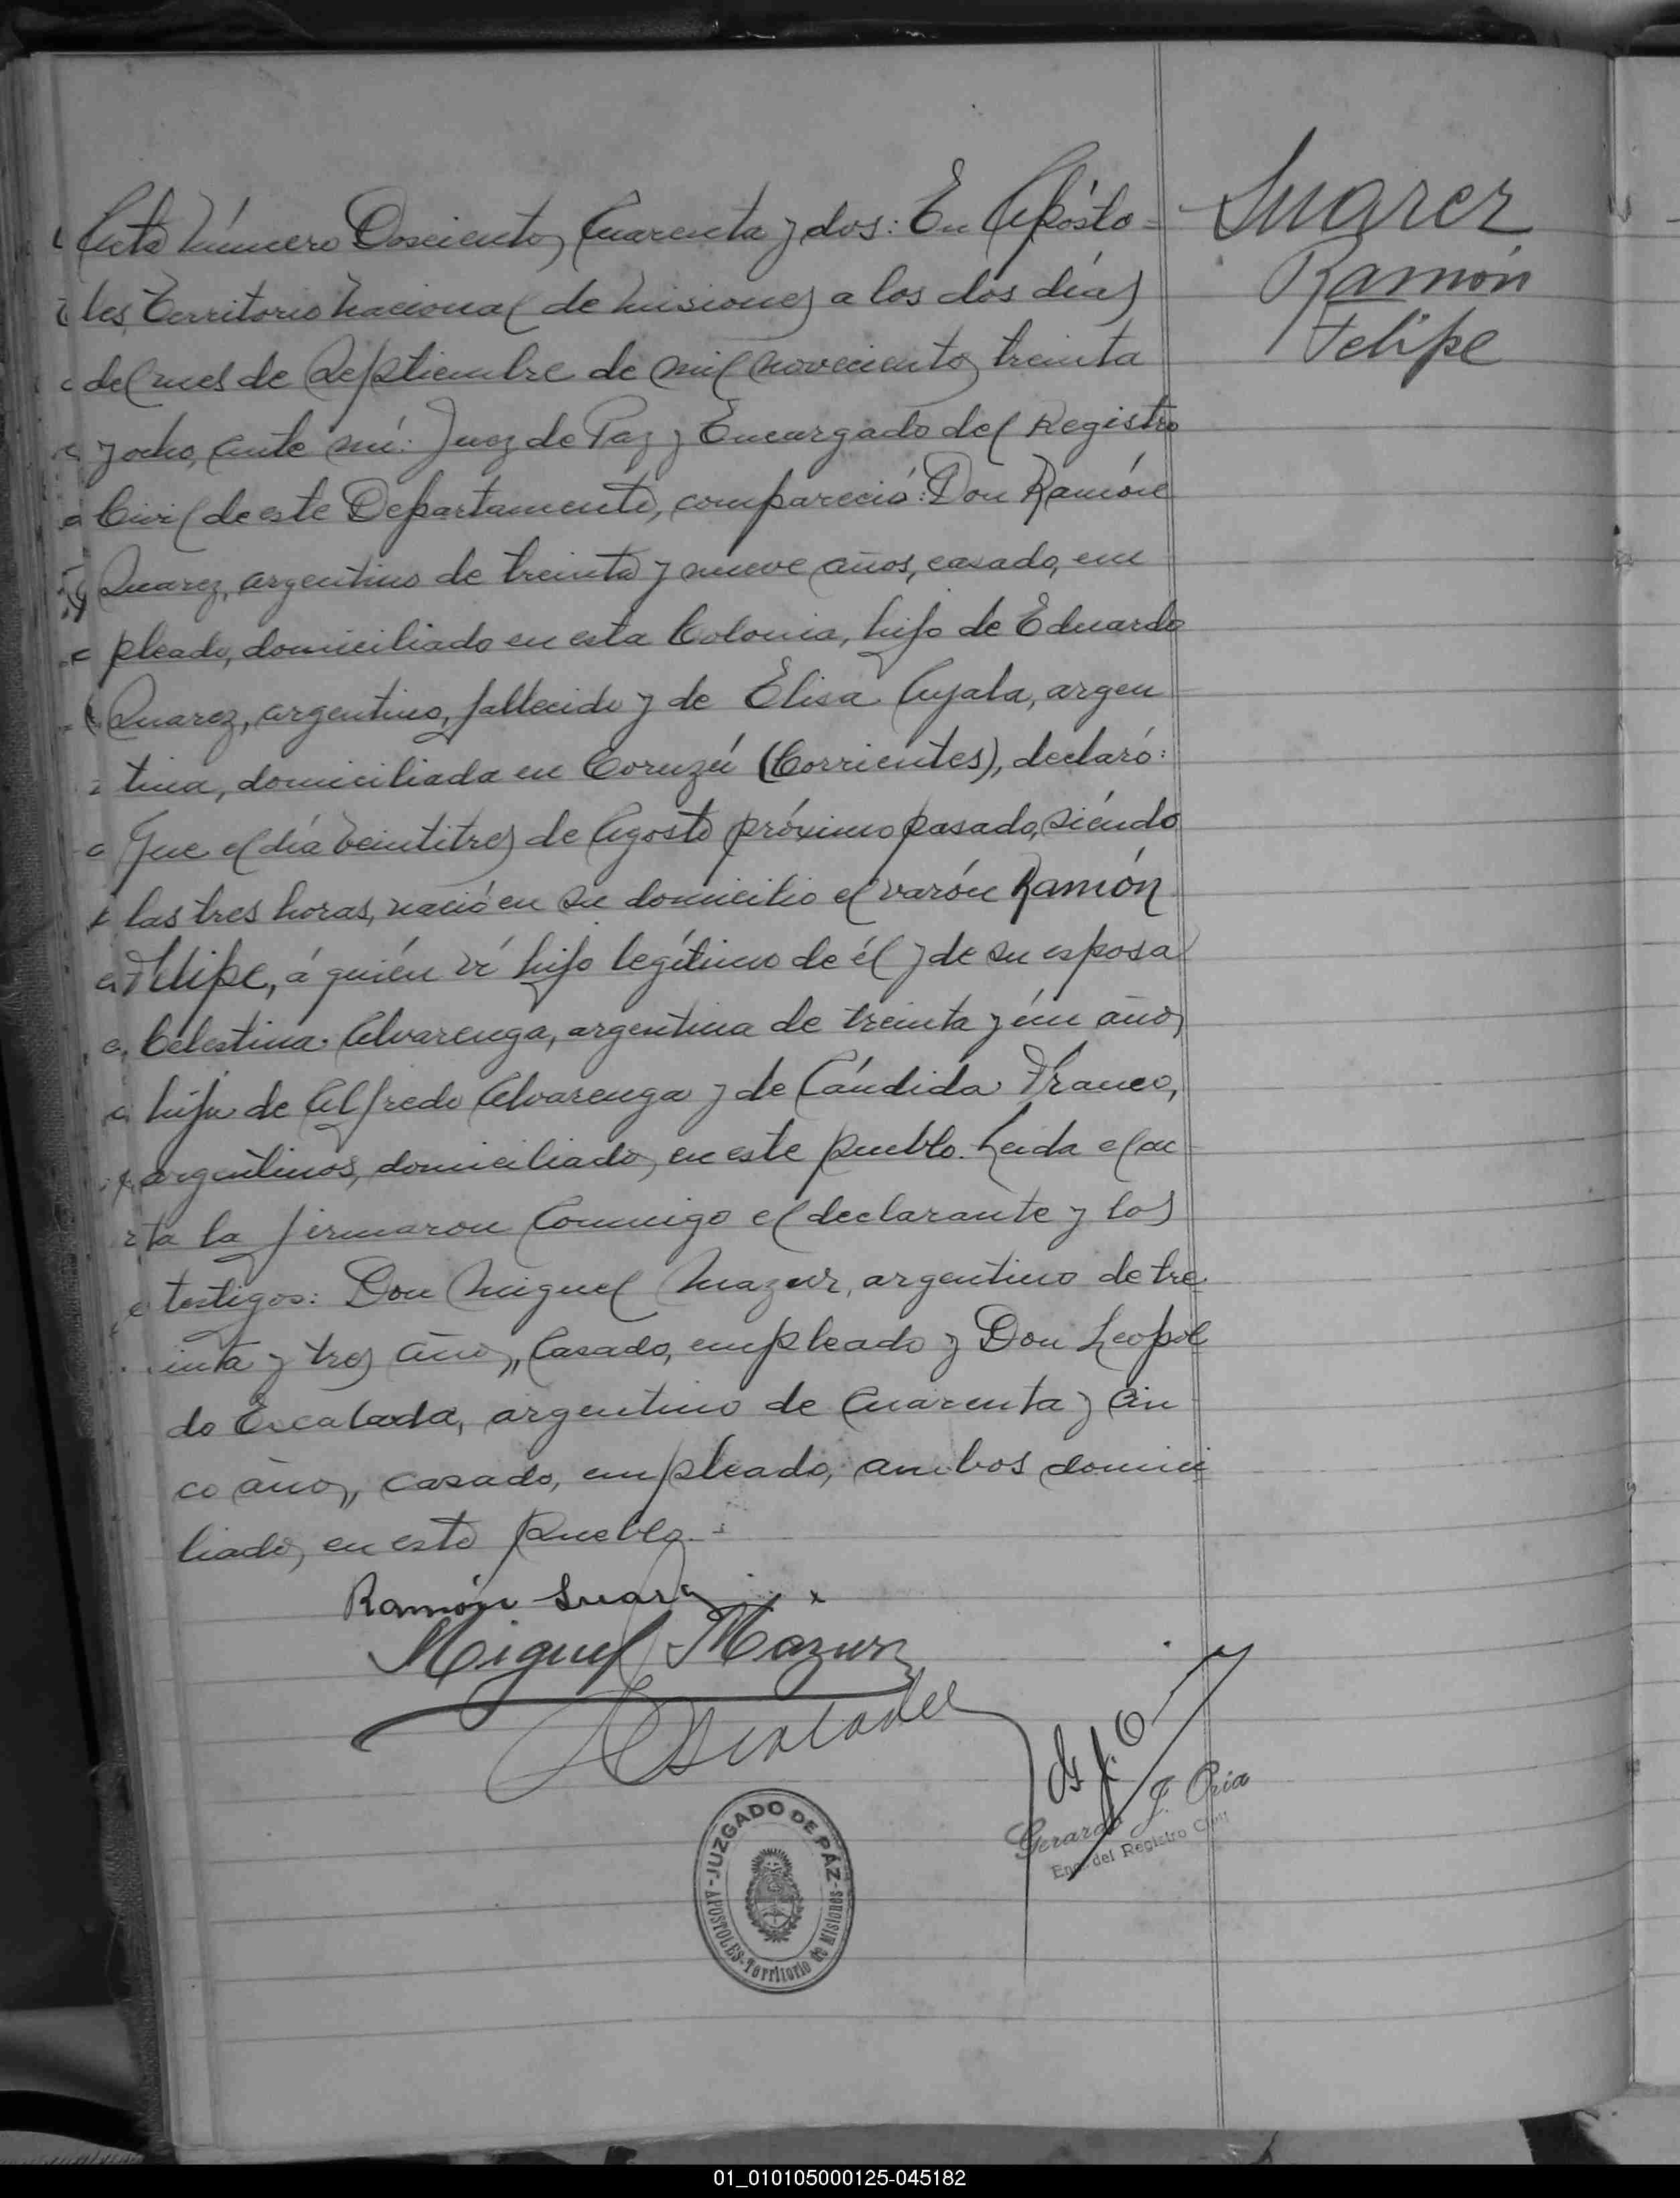 Suarez
Ramón
Felipe
Acta número Doscientos Cuarenta y dos: En Apósto=
les, Territorio Nacional de Misiones a los dos días
del mes de Septiembre de mil novecientos treinta
y ocho, ante mí: Juez de Paz y Encargado del Registro
Civil de este Departamento, compareció: Don Ramón
Suarez, argentino de treinta y nueve años, casado, em
pleado, domiciliado en esta Colonia, hijo de Eduardo
Suarez, argentino, fallecido y de Elisa Ayala, argen
tina, domiciliada en Coruzú (Corrientes), declaró:
Que el día veintitres de Agosto próximo pasado, siéndo
las tres horas, nació en su domicilio el varón Ramón
Felipe, á quién ví hijo legítimo de él y de su esposa
Celestina Alvarenga, argentina de treinta y ún años
hija de Alfredo Alvarenga y de Cándida Franco,
argentinos, domiciliados en este pueblo. Leida el ac
ta la firmaron conmigo el declarante y los
testigos: Don Miguel Mazur, argentino de tre
inta y tres años, casado, empleado y Don Leopol
do Escalada, argentino de cuarenta y cin
co años, casado, empleado, ambos domici
liados en este pueblo.-
Ramón Suarez
Miguel Mazur
L Escalada
G. J. O
Gerardo J. Oria
Enc. del Registro Civil
JUZGADO DE PÁZ
APOSTOLES-Territorio de Misiones
01_010105000125-045182